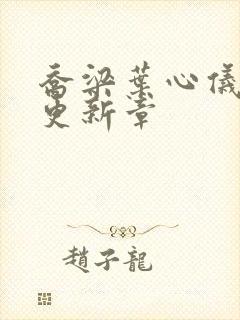 喬梁葉心儀
更新章
趙子龍